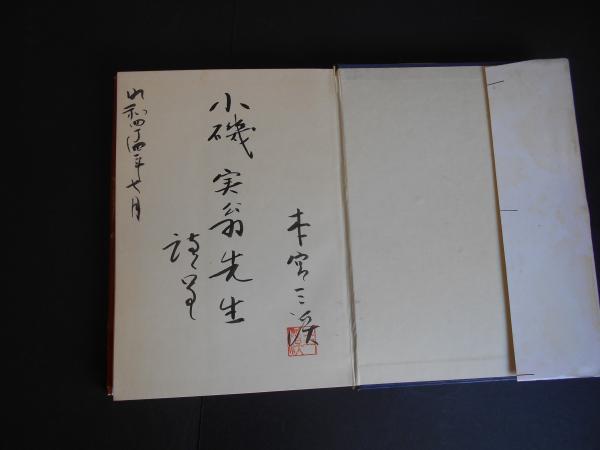 本宮三渓
小磯 実翁先生
昭和四十四年七月